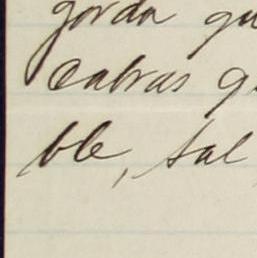 gorda qu
cabras q
ble, sal